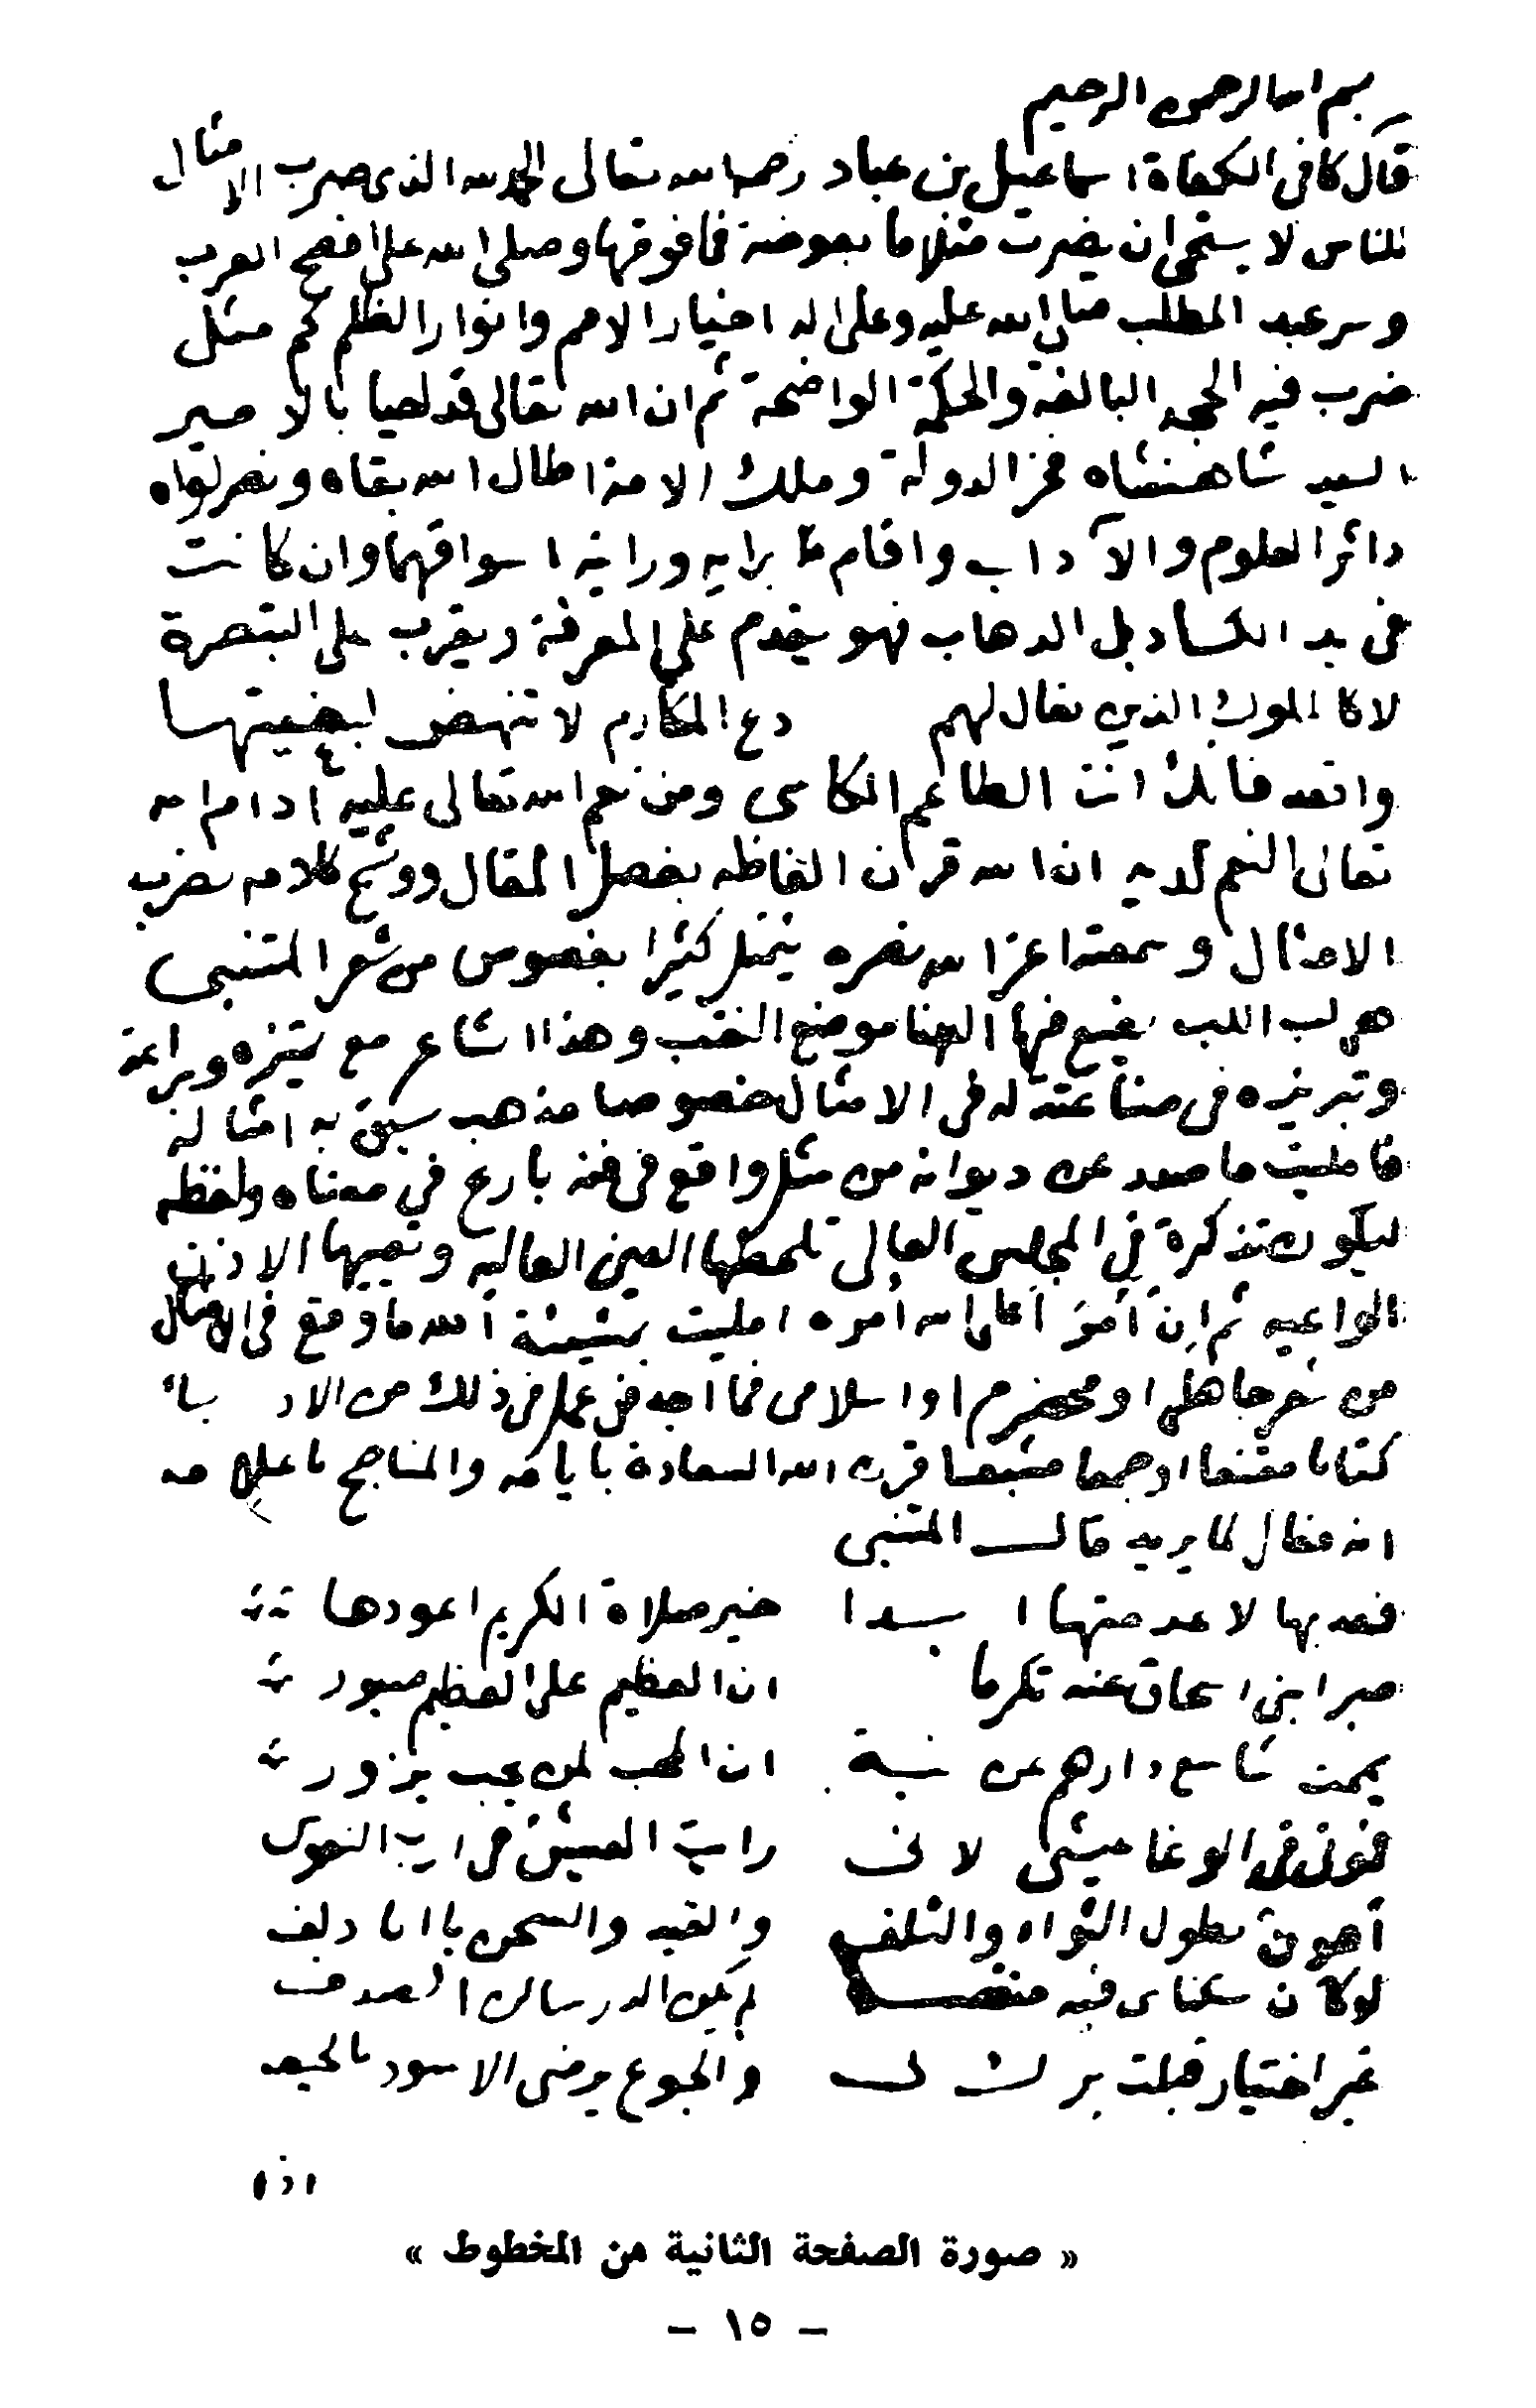 بسم الله الرحمن الرحيم
قال كافى الكفاة اسماعيل بن عباد رحمه الله تعالى الحمد لله الذى ضرب الامثال
للناس لا يستحى ان يضرب مثلا ما بعوضة فما فوقها وصلى الله على افصح العرب
وسر عبد المطلب صلى الله عليه وعلى اله اخيار الامم وانوار الظلم كم مثل
ضرب فيه الحجه البالغة والحكمة الواضحة ثم ان الله تعالى قد احيا بالامير
السيد شاهنشاه فخر الدولة وملك الامة اطال الله بقاه ونصر لواه
داثر العلوم والآداب واقام برايه ورايته اسواقها وان كانت
فى يد الكساد بل الدهاب فهو يقدم على المعرفة ويقرب على التبصرة
لا كالملوك الذين يقال لهم دع المكارم لا تنهض لبغيتها
واقعد فانك انت الطاعم الكاسى ومن نعم الله تعالى عليه ادام الله
تعالى النعم لديه ان الله قرن الفاظه بفصل المقال ووشح كلامه بضرب
الامثال وسمعته اعز الله نصره يتمثل كثيرا بفصوص من شعر المتنبى
هى لب اللب يضع فيها الهنا موضع النقب وهذا الشاعر مع تميزه وبراعته
وتبريزه فى صناعته له فى الامثال خصوصا مذهب سبق به امثاله
فامليت ما صدر عن ديوانه من مثل واقع فى فنه بارع فى معناه ولفظه
ليكون تذكرة فى المجلس العالى تلحظها العين العالية وتعيها الاذن
الواعيه ثم إن أمر أعلى الله أمره امليت بمشيئة الله ما وقع فى الامثال
من شعر جاهلى او مخضرم او اسلامى فما اجد من عمل فى ذلك من الادباء
كتابا مقنعا او جمعا مشبعا قرن الله السعادة بايامه والمناجح باعلامه
انه فعال لما يريد قال المتنبى
فعد بها لا عدمتها ابدا خير صلاة الكريم اعودها
صبرا بنى اسحاق عنه تكرما ان العظيم على العظيم صبور
يممت شاسع دارهم عن نية ان المحب لمن يحب يزور
فموتى فى الوغا عيشى لانى رايت العيش فى ارب النفوس
أهون بطول الثواء والتلف والقيد والسجن يا ابا دلف
لو كان سكناى فيه منقصة لم يكن الدر ساكن الصدف
غير اختيار قبلت برك لى والجوع يرضى الاسود بالجيف
اذا
« صورة الصفحة الثانية من المخطوط »
- ١٥ -